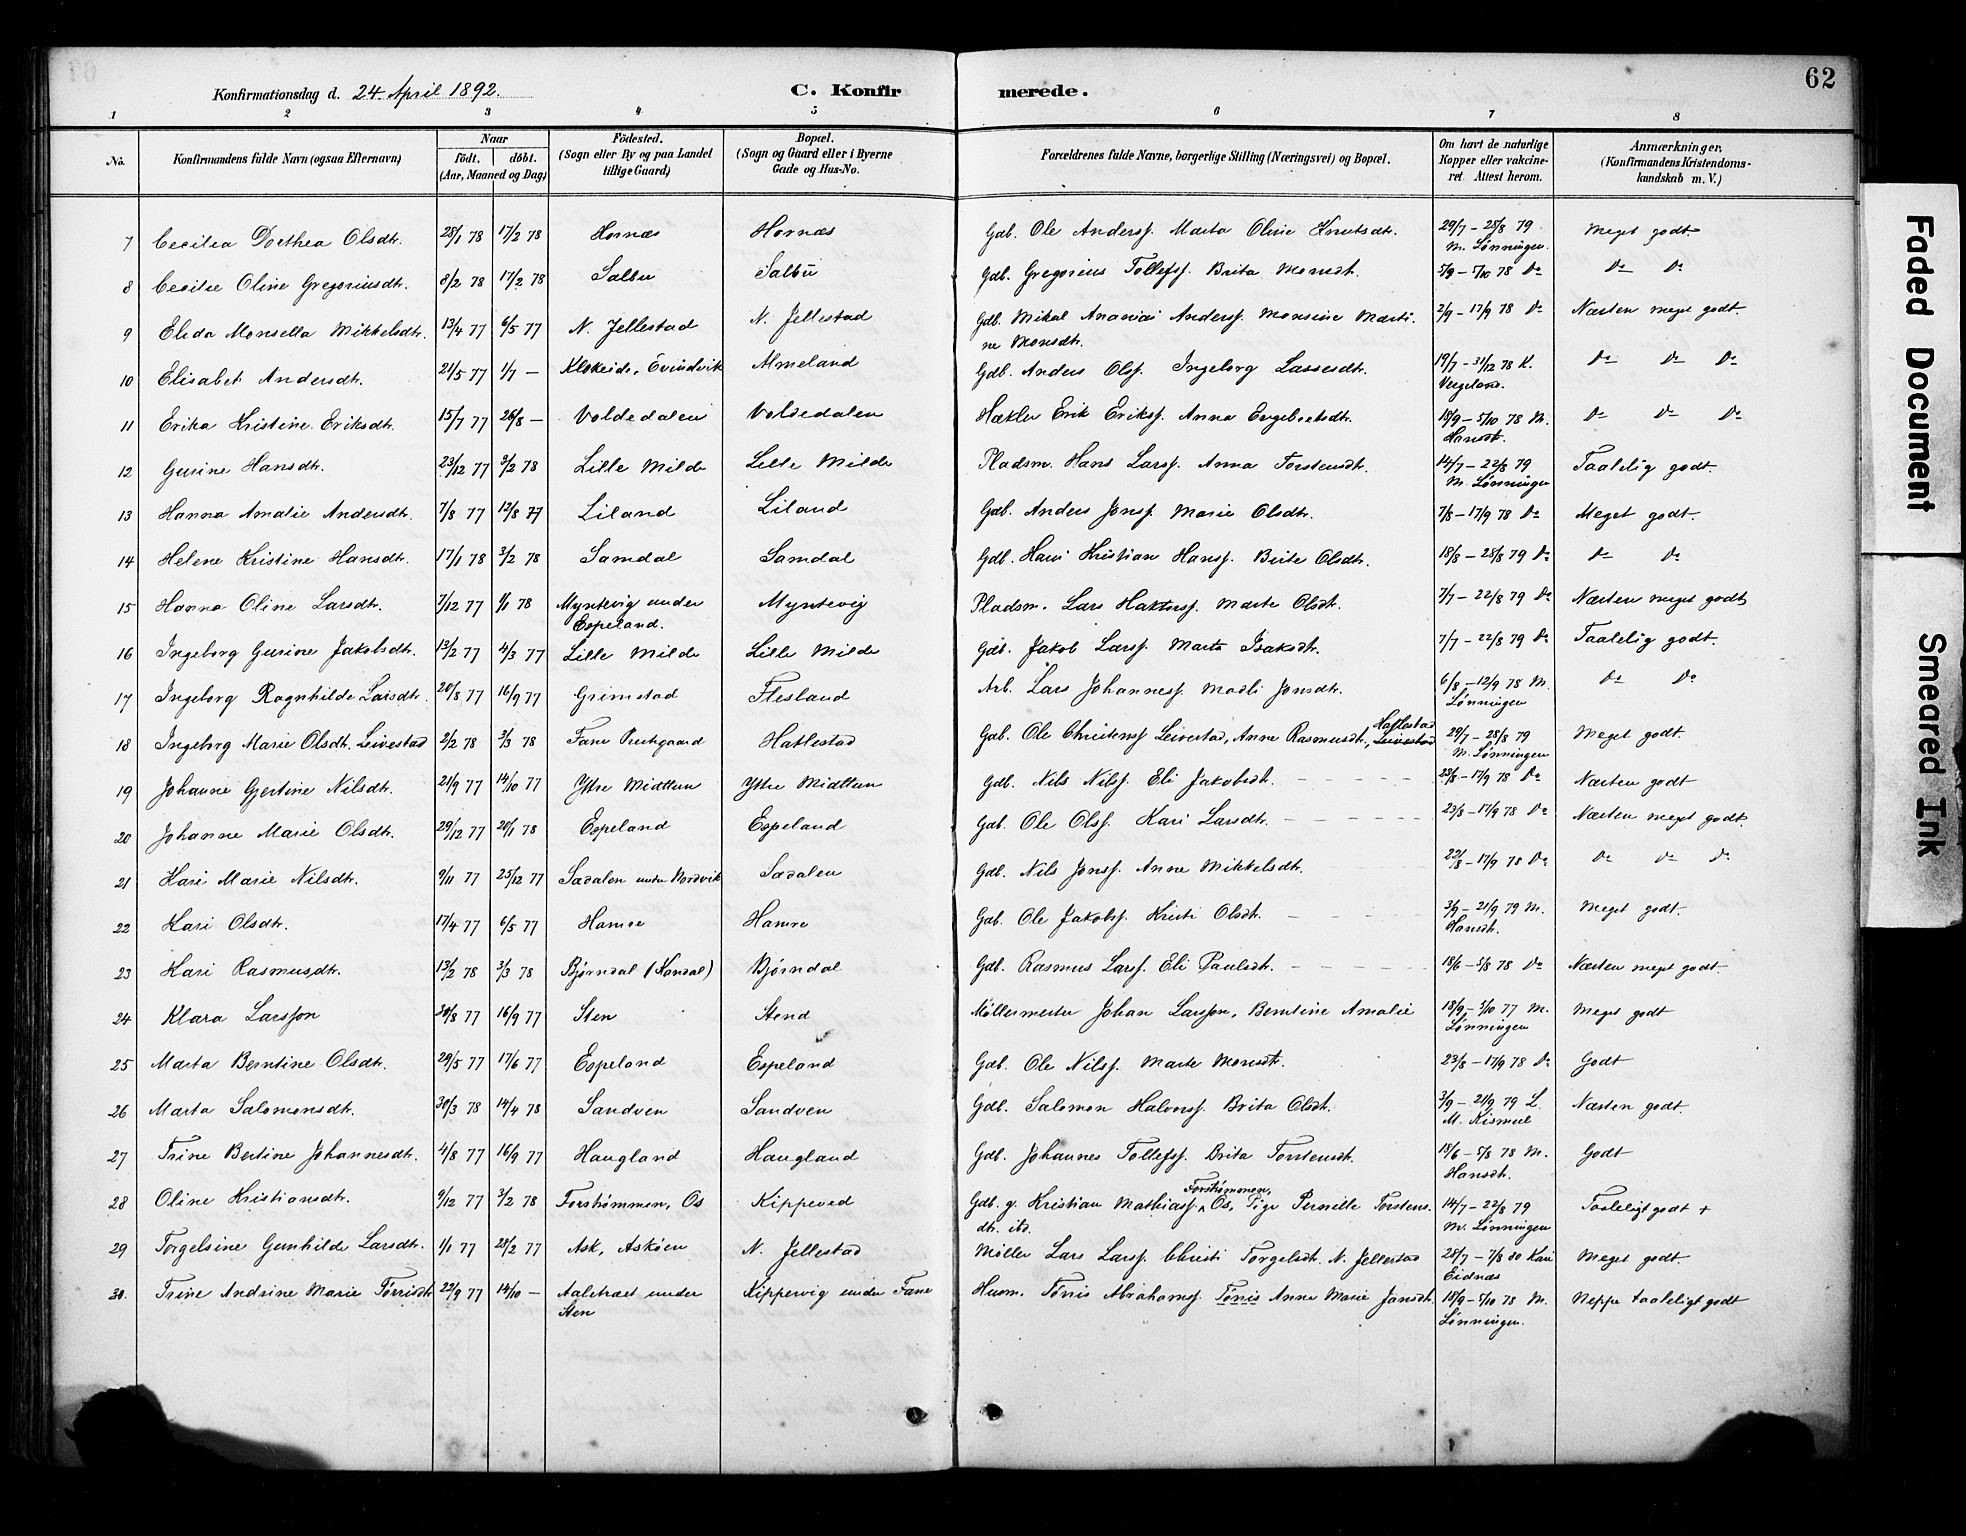 62
Konfirmationsdag d. 24. April 1892.
C. Konfirmerede.
1 2 3 4 5 6 7 8
No. Konfirmandens fulde Navn (ogsaa Efternavn) Naar födt. döbt. (Aar, Maaned og Dag) Födested. (Sogn eller By og paa Landet tillige Gaard) Bopæl. (Sogn og Gaard eller i Byerne Gade og Hus-No. Forældrenes fulde Navne, borgerlige Stilling (Næringsvei) og Bopæl. Om havt de naturlige Kopper eller vakcineret. Attest herom. Anmærkninger. (Konfirmandens Kristendomskundskab m. V.)
7 Cecilia Dorthea Olsdtr. 28/1 78 17/2 78 Hornæs Hornæs Gdb. Ole Anderss. Marta Oline Knutsdtr. 29/7 - 28/8 79 M. Lønningen. Meget godt.
8 Cecilie Oline Gregoriusdtr. 8/2 78 17/2 78 Salbu Salbu Gdb. Gregorius Tollefss. Brita Monsdtr. 5/9 - 5/10 78 Do Do Do
9 Elida Monsella Mikkelsdtr. 13/4 77 6/5 77 N. Jellestad N. Jellestad Gdb. Mikal Ananias Anderss. Monsine Martine Monsdtr. 2/9 - 17/9 78 Do Næsten meget godt.
10 Elisabet Andersdtr. 21/5 77 1/7 - Klokeide, Evindvik Almeland Gdb. Anders Olss. Ingeborg Lassesdtr. 19/7 - 31/12 78 K. Vergeland. Do Do Do
11 Erika Kristine Eriksdtr. 15/7 77 26/8 - Voldedalen Voldedalen Hækler Erik Erikss. Anna Engebretsdtr. 18/9 - 5/10 78 M. Hansdtr. Do Do Do
12 Gurine Hansdtr. 23/12 77 3/2 78 Lille Milde Lille Milde Pladsm. Hans Larss. Anna Torstensdtr. 14/7 - 22/8 79 M. Lønningen Taalelig godt.
13 Hanna Amalie Andersdtr. 7/8 77 12/8 77 Liland Liland Gdb. Anders Jonss. Marie Olsdtr. 7/8 - 17/9 78 Do Meget godt.
14 Helene Kristine Hansdtr. 17/1 78 3/2 78 Samdal Samdal Gdb. Hans Kristian Hanss. Brite Olsdtr. 18/8 - 28/8 79 Do Do Do
15 Hanna Oline Larsdtr. 7/12 77 1/1 78 Myntevig under Espeland. Myntevig Pladsm. Lars Haktors. Marte Olsdtr. 7/7 - 22/8 79 Do Næsten meget godt
16 Ingeborg Gurine Jakobsdtr. 13/2 77 4/3 77 Lille Milde Lille Milde Gdb. Jakob Larss. Marte Isaksdtr. 7/7 - 22/8 79 Do Taalelig godt.
17 Ingeborg Ragnhilde Larsdtr. 20/8 77 16/9 77 Grimstad Flesland Arb. Lars Johanness. Madli Jonsdtr. 6/8 - 12/9 78 M. Lønningen Do Do
18 Ingeborg Marie Olsdtr. Leivestad 2/2 78 3/3 78 Fane Prestgaard Hatlestad Gdb. Ole Christenss Leivestad, Anne Rasmusdtr., Hatlestad Leivestad 29/7 - 28/8 79 M. Lønningen Meget godt.
19 Johanne Gjertine Nilsdtr. 21/9 77 14/10 77 Ytre Midttun Ytre Midttun Gdb. Nils Nilss. Eli Jakobsdtr. 28/8 - 17/9 78 Do Næsten godt
20 Johanne Marie Olsdtr. 29/12 77 20/1 78 Espeland Espeland Gdb. Ole Olss. Kari Larsdtr. 23/8 - 17/9 78 Do Næsten meget godt.
21 Kari Marie Nilsdtr. 9/11 77 25/12 77 Sædalen under Nordvik Sædalen Gdb. Nils Jonss. Anne Mikkelsdtr. 22/8 - 17/9 78 Do Do Do Do
22 Kari Olsdtr. 17/4 77 6/5 77 Hamre Hamre Gdb. Ole Jakobss. Kristi Olsdtr. 3/9 - 21/9 79 M. Hansdtr. Meget godt.
23 Kari Rasmusdtr. 13/2 78 3/3 78 Bjørndal (Kandal) Bjørndal Gdb. Rasmus Larss. Eli Paulsdtr. 18/6 - 5/8 78 Do Næsten meget godt.
24 Klara Larsson 30/8 77 16/9 77 Sten Stend Møllermester Johan Larsson, Berntine Amalie 18/9 - 5/10 77 M. Lønningen Meget godt
25 Marta Berntine Olsdtr. 29/5 77 17/6 77 Espeland Espeland Gdb. Ole Nilss. Marte Monsdtr. 23/8 - 17/9 78 Do Godt
26 Marta Salomonsdtr. 30/3 78 14/4 78 Sandven Sandven Gdb. Salomon Halvorss. Brita Olsdtr. 3/9 - 21/9 79 L. M. Kismul Næsten godt.
27 Trine Bertine Johannesdtr. 4/8 77 16/9 77 Haugland Haugland Gdb. Johannes Tollefss. Brita Torstensdtr. 18/6 - 5/8 78 M. Hansdtr. Godt
28 Oline Kristiansdtr. 9/12 77 3/2 78 Forstrømmen, Os Kippeved Gdb. g. Kristian Mathiass. Forstrømmen, Os, Pige Pernille Torstensdtr. ibd. 14/7 - 22/8 79 M. Lønningen Taaleligt godt +
29 Torgelsine Gunhilde Larsdtr. 1/1 77 28/2 77 Ask, Askøen N. Jellestad Møller Lars Larss. Christi Torgelsdtr. N. Jellestad 28/7 - 7/8 80 Kari Eidnæs Meget godt.
30. Trine Andrine Marie Tørrisdtr 22/9 77 14/10 - Aaletræet under Sten Kippervig under Fane Husm. Tørris Abrahamss. Tørris Anne Marie Jansdtr. 18/9 - 5/10 78 M. Lønningen. Neppe taaleligt godt
Faded Document
Smeared Ink